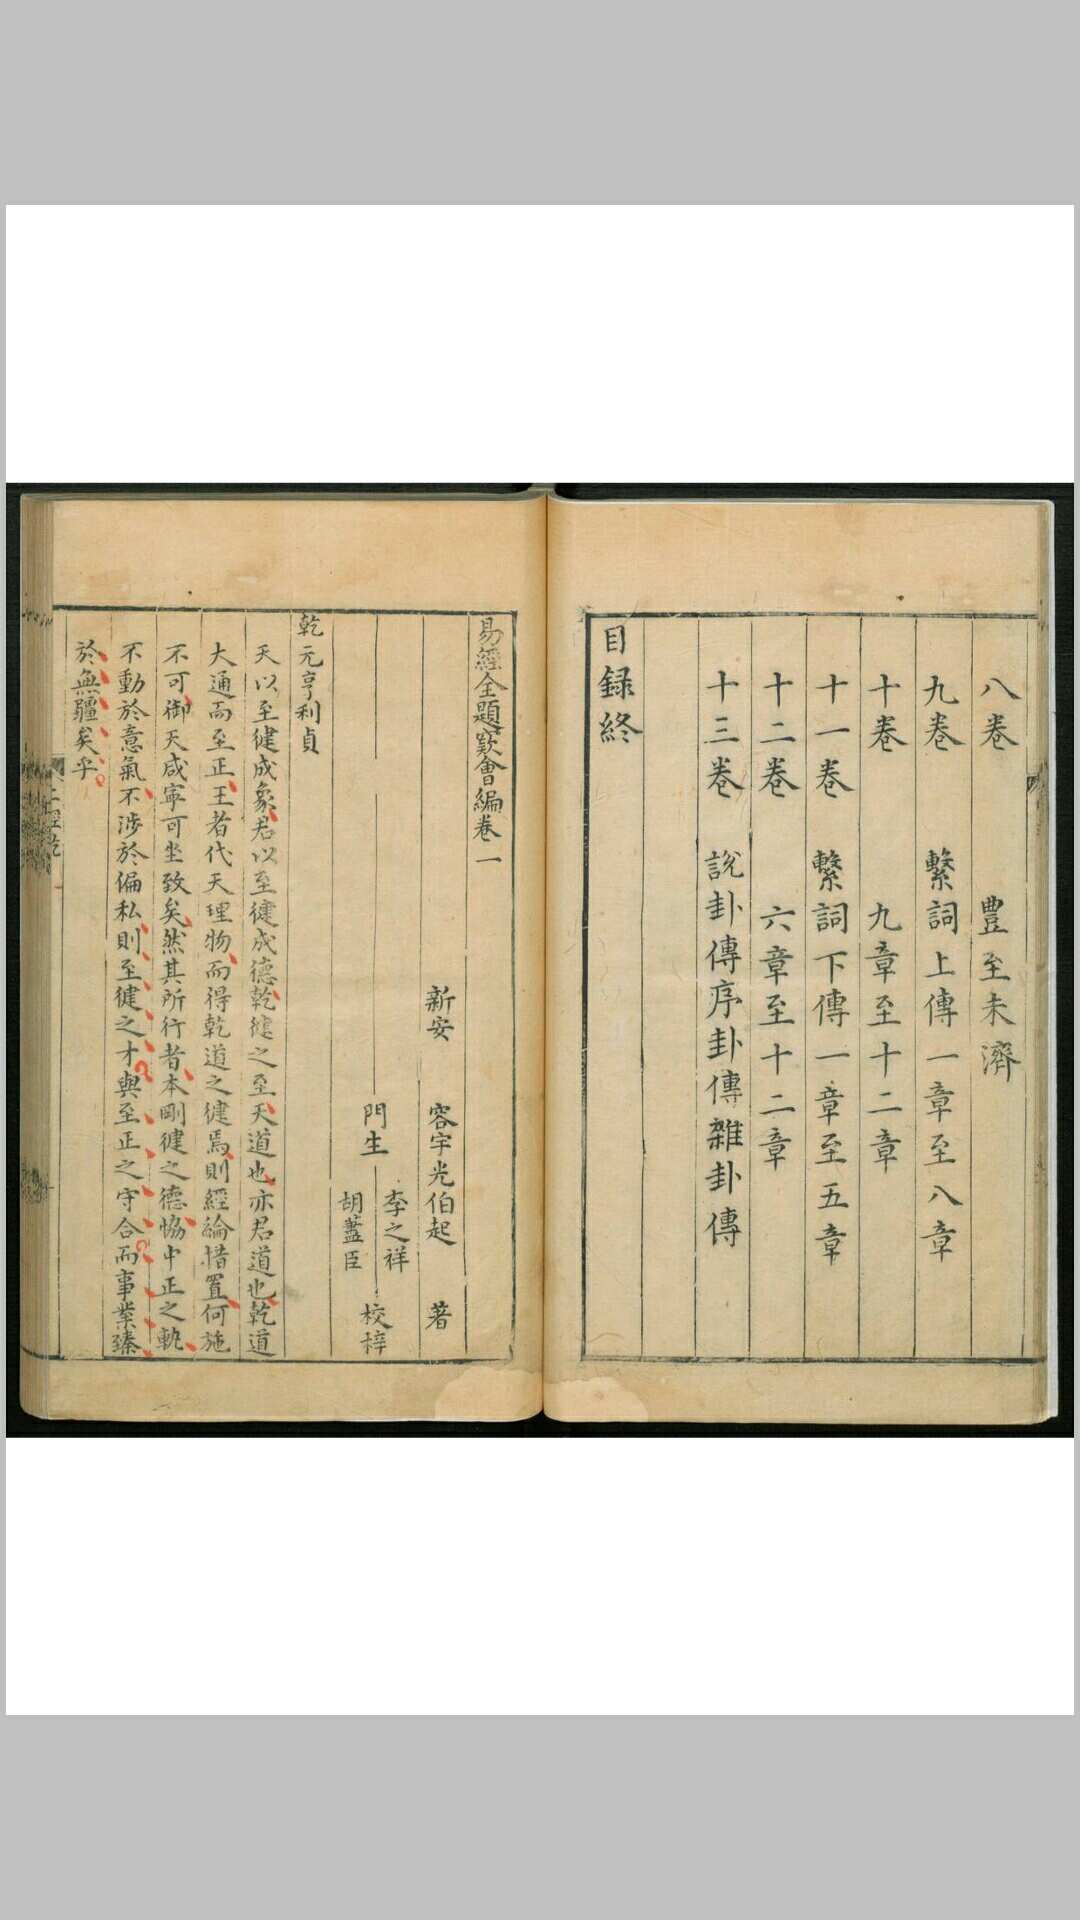 八卷 豊至未濟
九卷 繫詞上傳一章至八章
十卷 九章至十二章
十一卷 繫詞下傳一章至五章
十二卷 六章至十二章
十三卷 說卦傳序卦傳雜卦傳
目録終
易經全題窽會編卷一
新安 容宇光伯起 著
門生 李之祥 胡藎臣 校梓
乾元亨利貞
天以至徤成象君以至徤成德乾徤之至天道也亦君道也乾道
大通而至正王者代天理物而得乾道之徤焉則經綸措置何施
不可御天咸寧可坐致矣然其所行者本剛徤之德恊中正之軌
不動於意氣不涉於偏私則至徤之才與至正之守合而事業臻
於無疆矣乎
上經乾